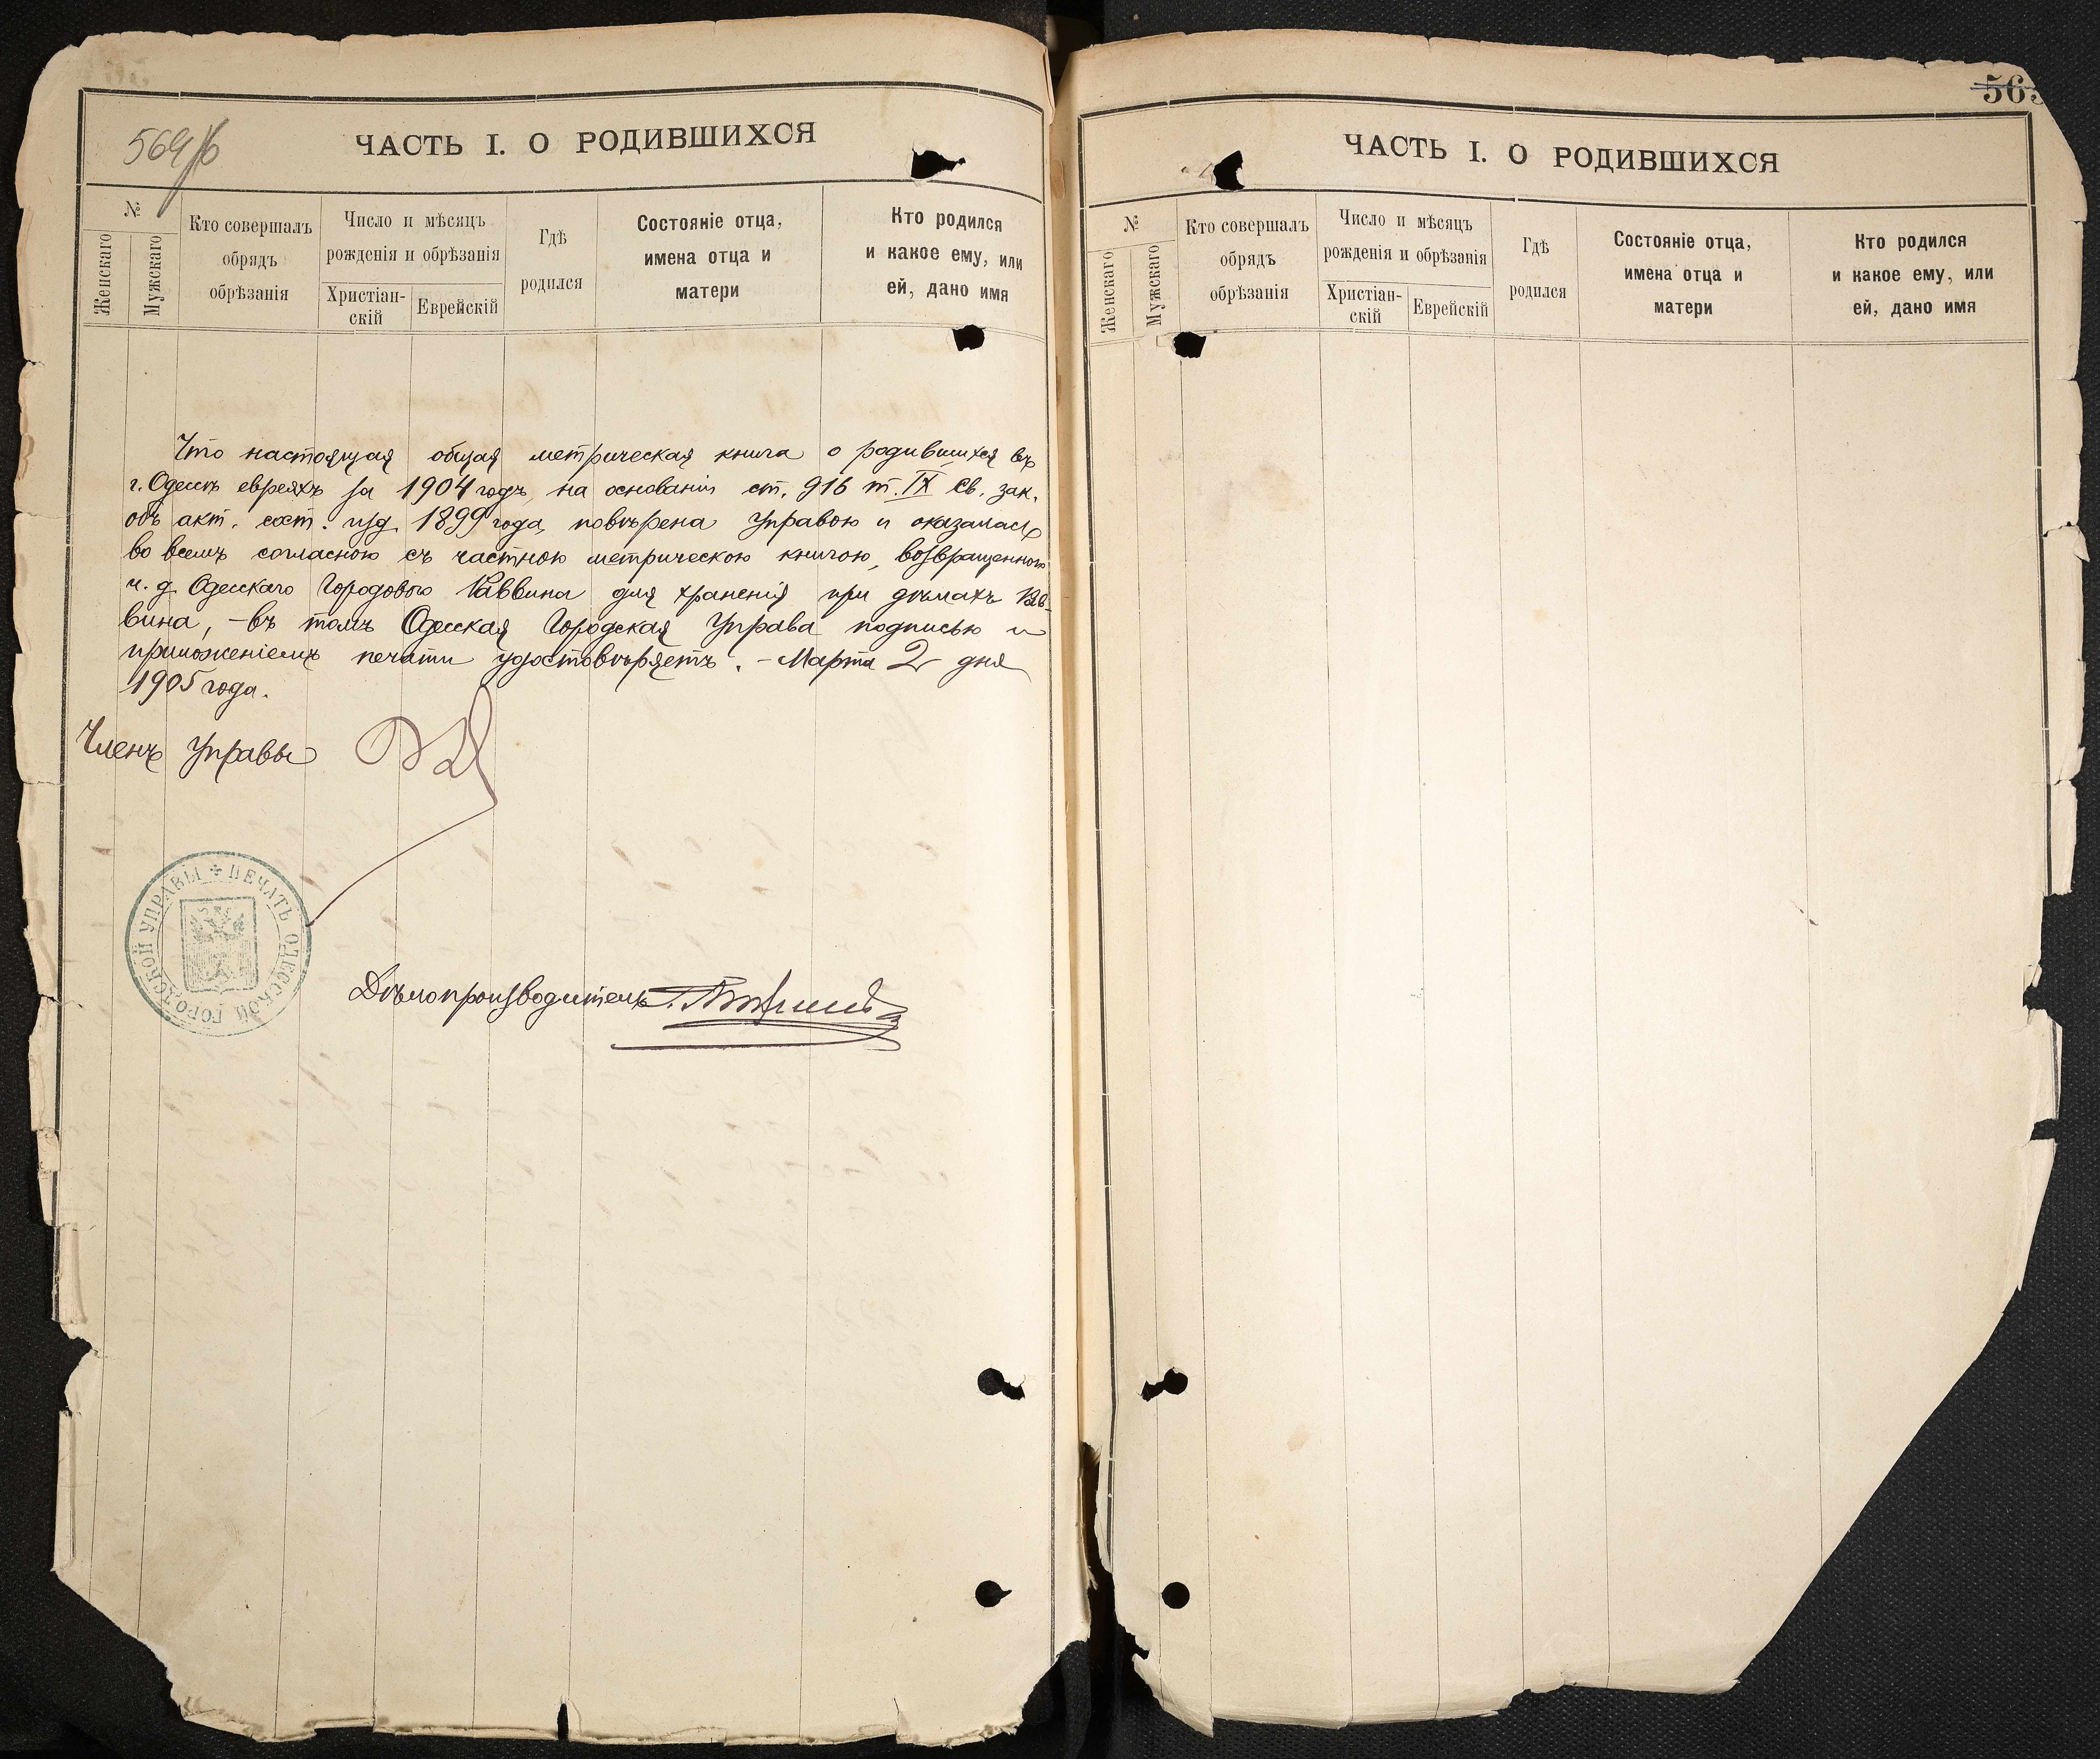 564/б
ЧАСТЬ I. О РОДИВШИХСЯ
№
Женскаго
Мужскаго
Кто совершалъ
обрядъ
обрѣзанія
Число и мѣсяцъ
рожденія и обрѣзанія
Христіан-
скій
Еврейскій
Гдѣ
родился
Состояніе отца,
имена отца и
матери
Кто родился
и какое ему, или
ей, дано имя
Что настоящая общая метрическая книга о родившихся въ
г. Одессѣ евреяхъ за 1904 годъ, на основаніи ст. 916 т. IX св. зак.
объ акт. сост. изд. 1899 года, повѣрена Управою и оказалась
во всемъ согласною съ частною метрическою книгою, возвращенною
и. д. Одесскаго Городового Раввина для храненія при дѣлахъ Рав-
вина, – въ томъ Одесская Городская Управа подписью и
приложеніемъ печати удостовѣряетъ. – Марта 2 дня
1905 года.
Членъ Управы
ПЕЧАТЬ ОДЕССКОЙ ГОРОДСКОЙ УПРАВЫ
Дѣлопроизводитель
565
ЧАСТЬ I. О РОДИВШИХСЯ
№
Женскаго
Мужскаго
Кто совершалъ
обрядъ
обрѣзанія
Число и мѣсяцъ
рожденія и обрѣзанія
Христіан-
скій
Еврейскій
Гдѣ
родился
Состояніе отца,
имена отца и
матери
Кто родился
и какое ему, или
ей, дано имя